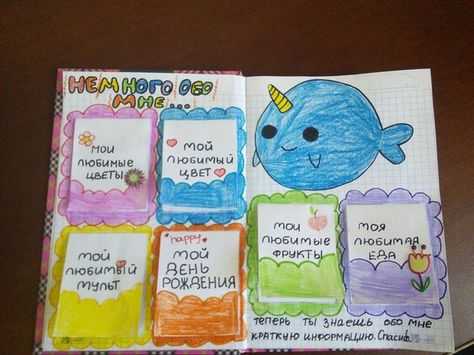 НЕМНОГО ОБО
МНЕ...
МОИ
ЛЮБИМЫЕ
ЦВЕТЫ
МОЙ
ЛЮБИМЫЙ
ЦВЕТ
МОЙ
ЛЮБИМЫЙ
МУЛЬТ
happy
МОЙ
ДЕНЬ
РОЖДЕНИЯ
МОИ
ЛЮБИМЫЕ
ФРУКТЫ
МОЯ
ЛЮБИМАЯ
ЕДА
ТЕПЕРЬ ТЫ ЗНАЕШЬ ОБО МНЕ
КРАТКУЮ ИНФОРМАЦИЮ. Спасиб